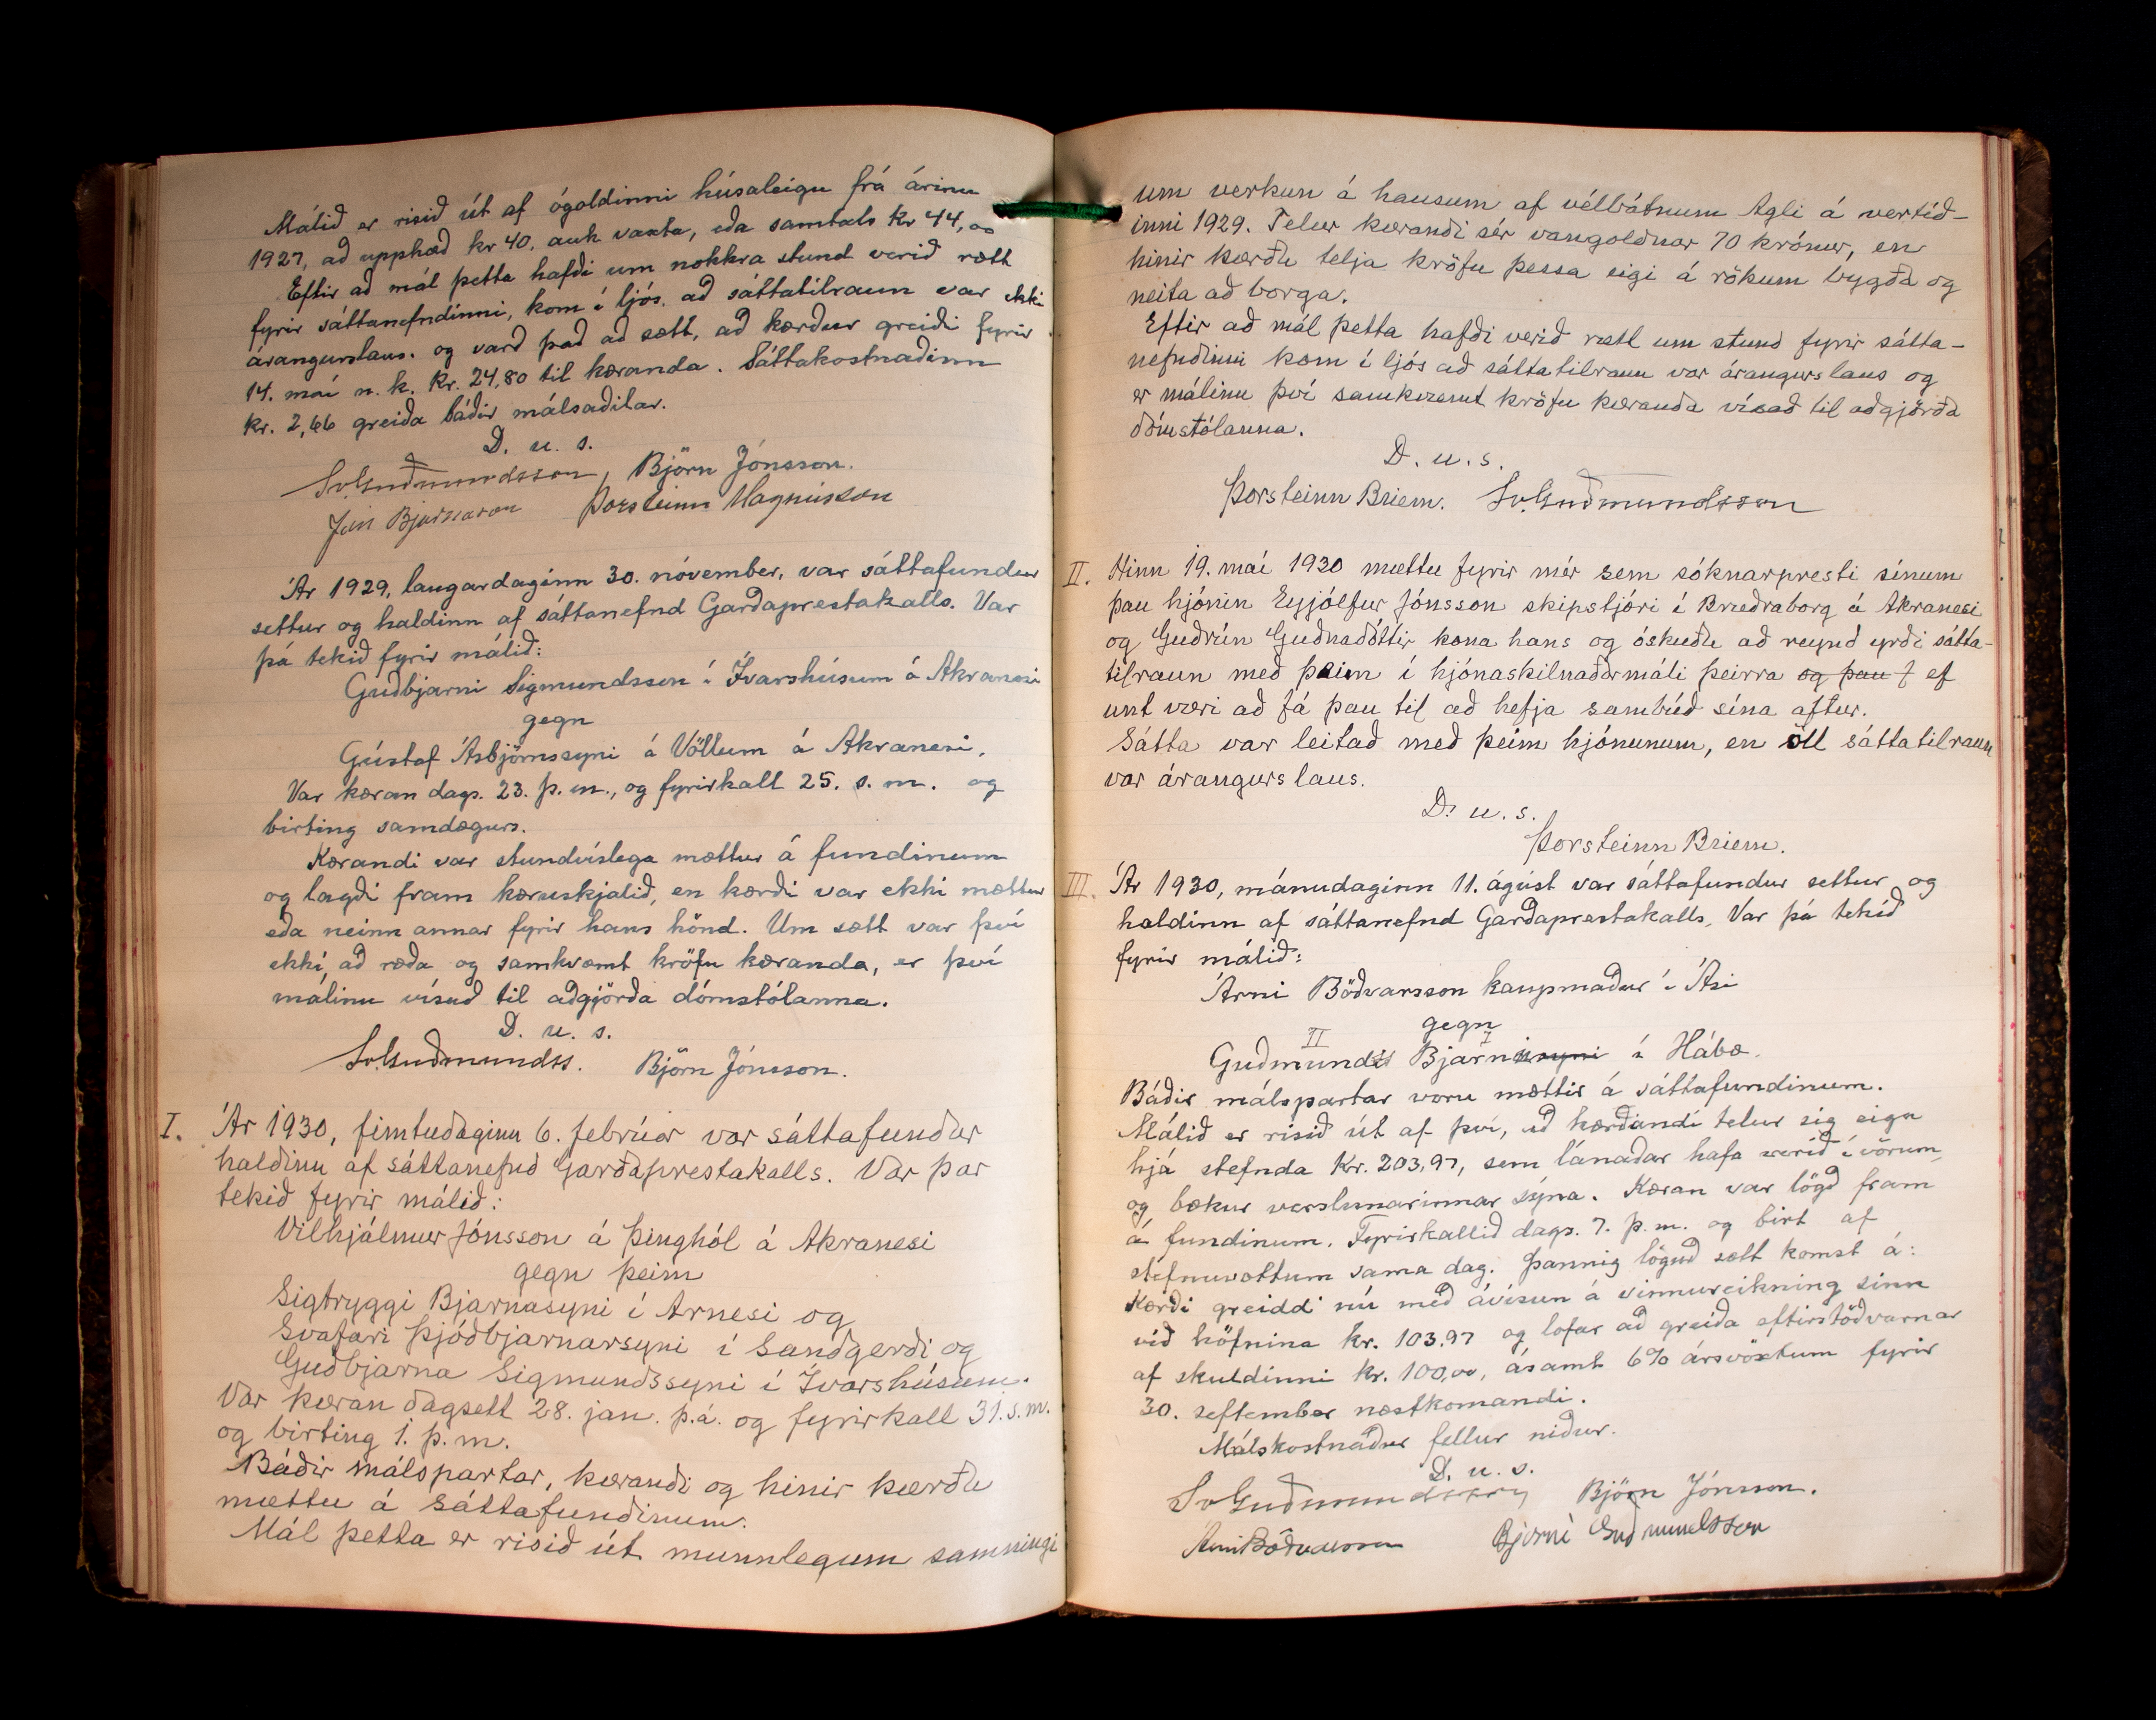 Málið er risið út af ógoldinni húsaleigu frá árinu
1927, að upphæð kr 40, auk vaxta, eða samtals kr 44,00
Eftir að mál þetta hafði um nokkra stund verið rætt
fyrir sáttanefndinni, kom í ljós, að sáttatilraun var ekki
árangurslaus. og varð það að sætt, að kærður greiði fyrir
14. maí n. k. kr. 24,80 til kæranda. Sáttakostnaðinn
kr. 2,66 greiða báðir málsaðilar.
D. u. s.
Sv. Guðmundsson, Björn Jónsson.
Jón Bjarnason Þorsteinn Magnússon
Ár 1929, laugardaginn 30. nóvember, var sáttafundur
settur og haldinn af sáttanefnd Garðaprestakalls. Var
þá tekið fyrir málið:
Guðbjarni Sigmundsson í Ívarshúsum á Akranesi
gegn
Gústaf Ásbjörnssyni á Völlum á Akranesi.
Var kæran dags. 23. þ. m., og fyrirkall 25. s. m. og
birting samdægurs.
Kærandi var stundvíslega mættur á fundinum
og lagði fram kæruskjalið, en kærði var ekki mættur
eða neinn annar fyrir hans hönd. Um sætt var því
ekki að ræða og samkvæmt kröfu kæranda, er því
málinu vísað til aðgjörða dómstólanna.
D. u. s.
Sv. Guðmundss. Björn Jónsson.
I. Ár 1930, fimtudaginn 6. febrúar var sáttafundur
haldinn af sáttanefnd Garðaprestakalls. Var þar
tekið fyrir málið:
Vilhjálmur Jónsson á Þinghól á Akranesi
gegn þeim
Sigtryggi Bjarnasyni í Arnesi og
Svafari Þjóðbjarnarsyni í Sandgerði og
Guðbjarna Sigmundssyni í Ívarshúsum.
Var kæran dagsett 28. jan. þ.á. og fyrirkall 31. s. m.
og birting 1. þ. m.
Báðir málspartar, kærandi og hinir kærðu
mættu á sáttafundinum.
Mál þetta er risið út munnlegum samningi
um verkun á hausum af vélbátnum Agli á vertíð-
inni 1929. Telur kærandi sér vangoldnar 70 krónur, en
hinir kærðu telja kröfu þessa eigi á rökum bygða og
neita að borga.
Eftir að mál þetta hafði verið rætt um stund fyrir sátta-
nefndinni kom í ljós að sáttatilraun var árangurslaus og
er málinu því samkvæmt kröfu kæranda vísað til aðgjörða
dómstólanna.
D. u. s.
Þorsteinn Briem. Sv. Guðmundsson
II. Hinn 19. maí 1930 mættu fyrir mér sem sóknarpresti sínum
þau hjónin Eyjólfur Jónsson skipstjóri í Bræðraborg á Akranesi
og Guðrún Guðnadóttir kona hans og óskuðu að reynd yrði sátta-
tilraun með þeim í hjónaskilnaðarmáli þeirra og þau f ef
unt væri að fá þau til að hefja sambúð sína aftur.
Sátta var leitað með þeim hjónunum, en öll sáttatilraun
var árangurslaus.
D. u. s.
Þorsteinn Briem.
III. Ár 1930, mánudaginn 11. ágúst var sáttafundur settur og
haldinn af sáttanefnd Garðaprestakalls. Var þá tekið
fyrir málið:
Árni Böðvarsson kaupmaður í Ási
gegn
II I
Guðmunds Bjarnasyni í Hábæ.
Báðir málspartar voru mættir á sáttafundinum.
Málið er risið út af því, að kærandi telur sig eiga
hjá stefnda kr. 203,97, sem lánaðar hafa verið í vörum,
og bækur verslunarinnar sýna. Kæran var lögð fram
á fundinum. Fyrirkallið dags. 7. þ. m. og birt af
stefnuvottum sama dag. Þannig löguð sætt komst á:
Kærði greiddi nú með ávísun á vinnureikning sinn
við höfnina kr. 103.97 og lofar að greiða eftirstöðvarnar
af skuldinni kr. 100,00, ásamt 6% ársvöxtum fyrir
30. september næstkomandi.
Málskostnaður fellur niður.
D. u. s.
Sv Guðmundsson Björn Jónsson.
Árni Böðvarsson Bjarni Guðmundsson